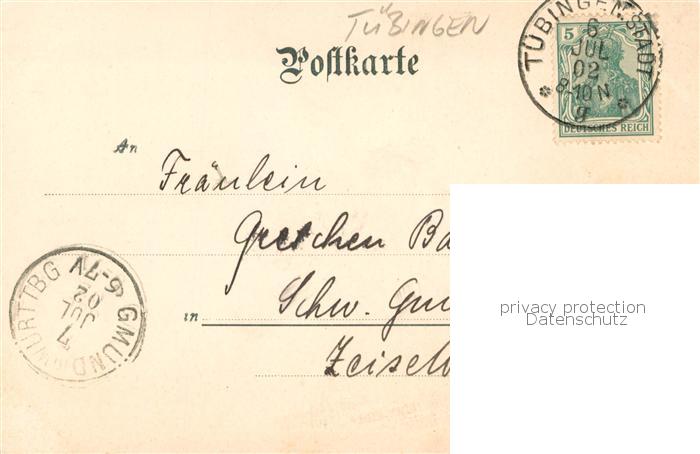 TÜBINGEN
Postkarte
TÜBINGEN STADT
6
JUL
02
8-10N
* g *
5
DEUTSCHES REICH
An
Fräulein
Gretchen Ba
in Schw. Gmü
GMÜND WÜRTTBG
7
JUL
02
6-7V
privacy protection
Datenschutz